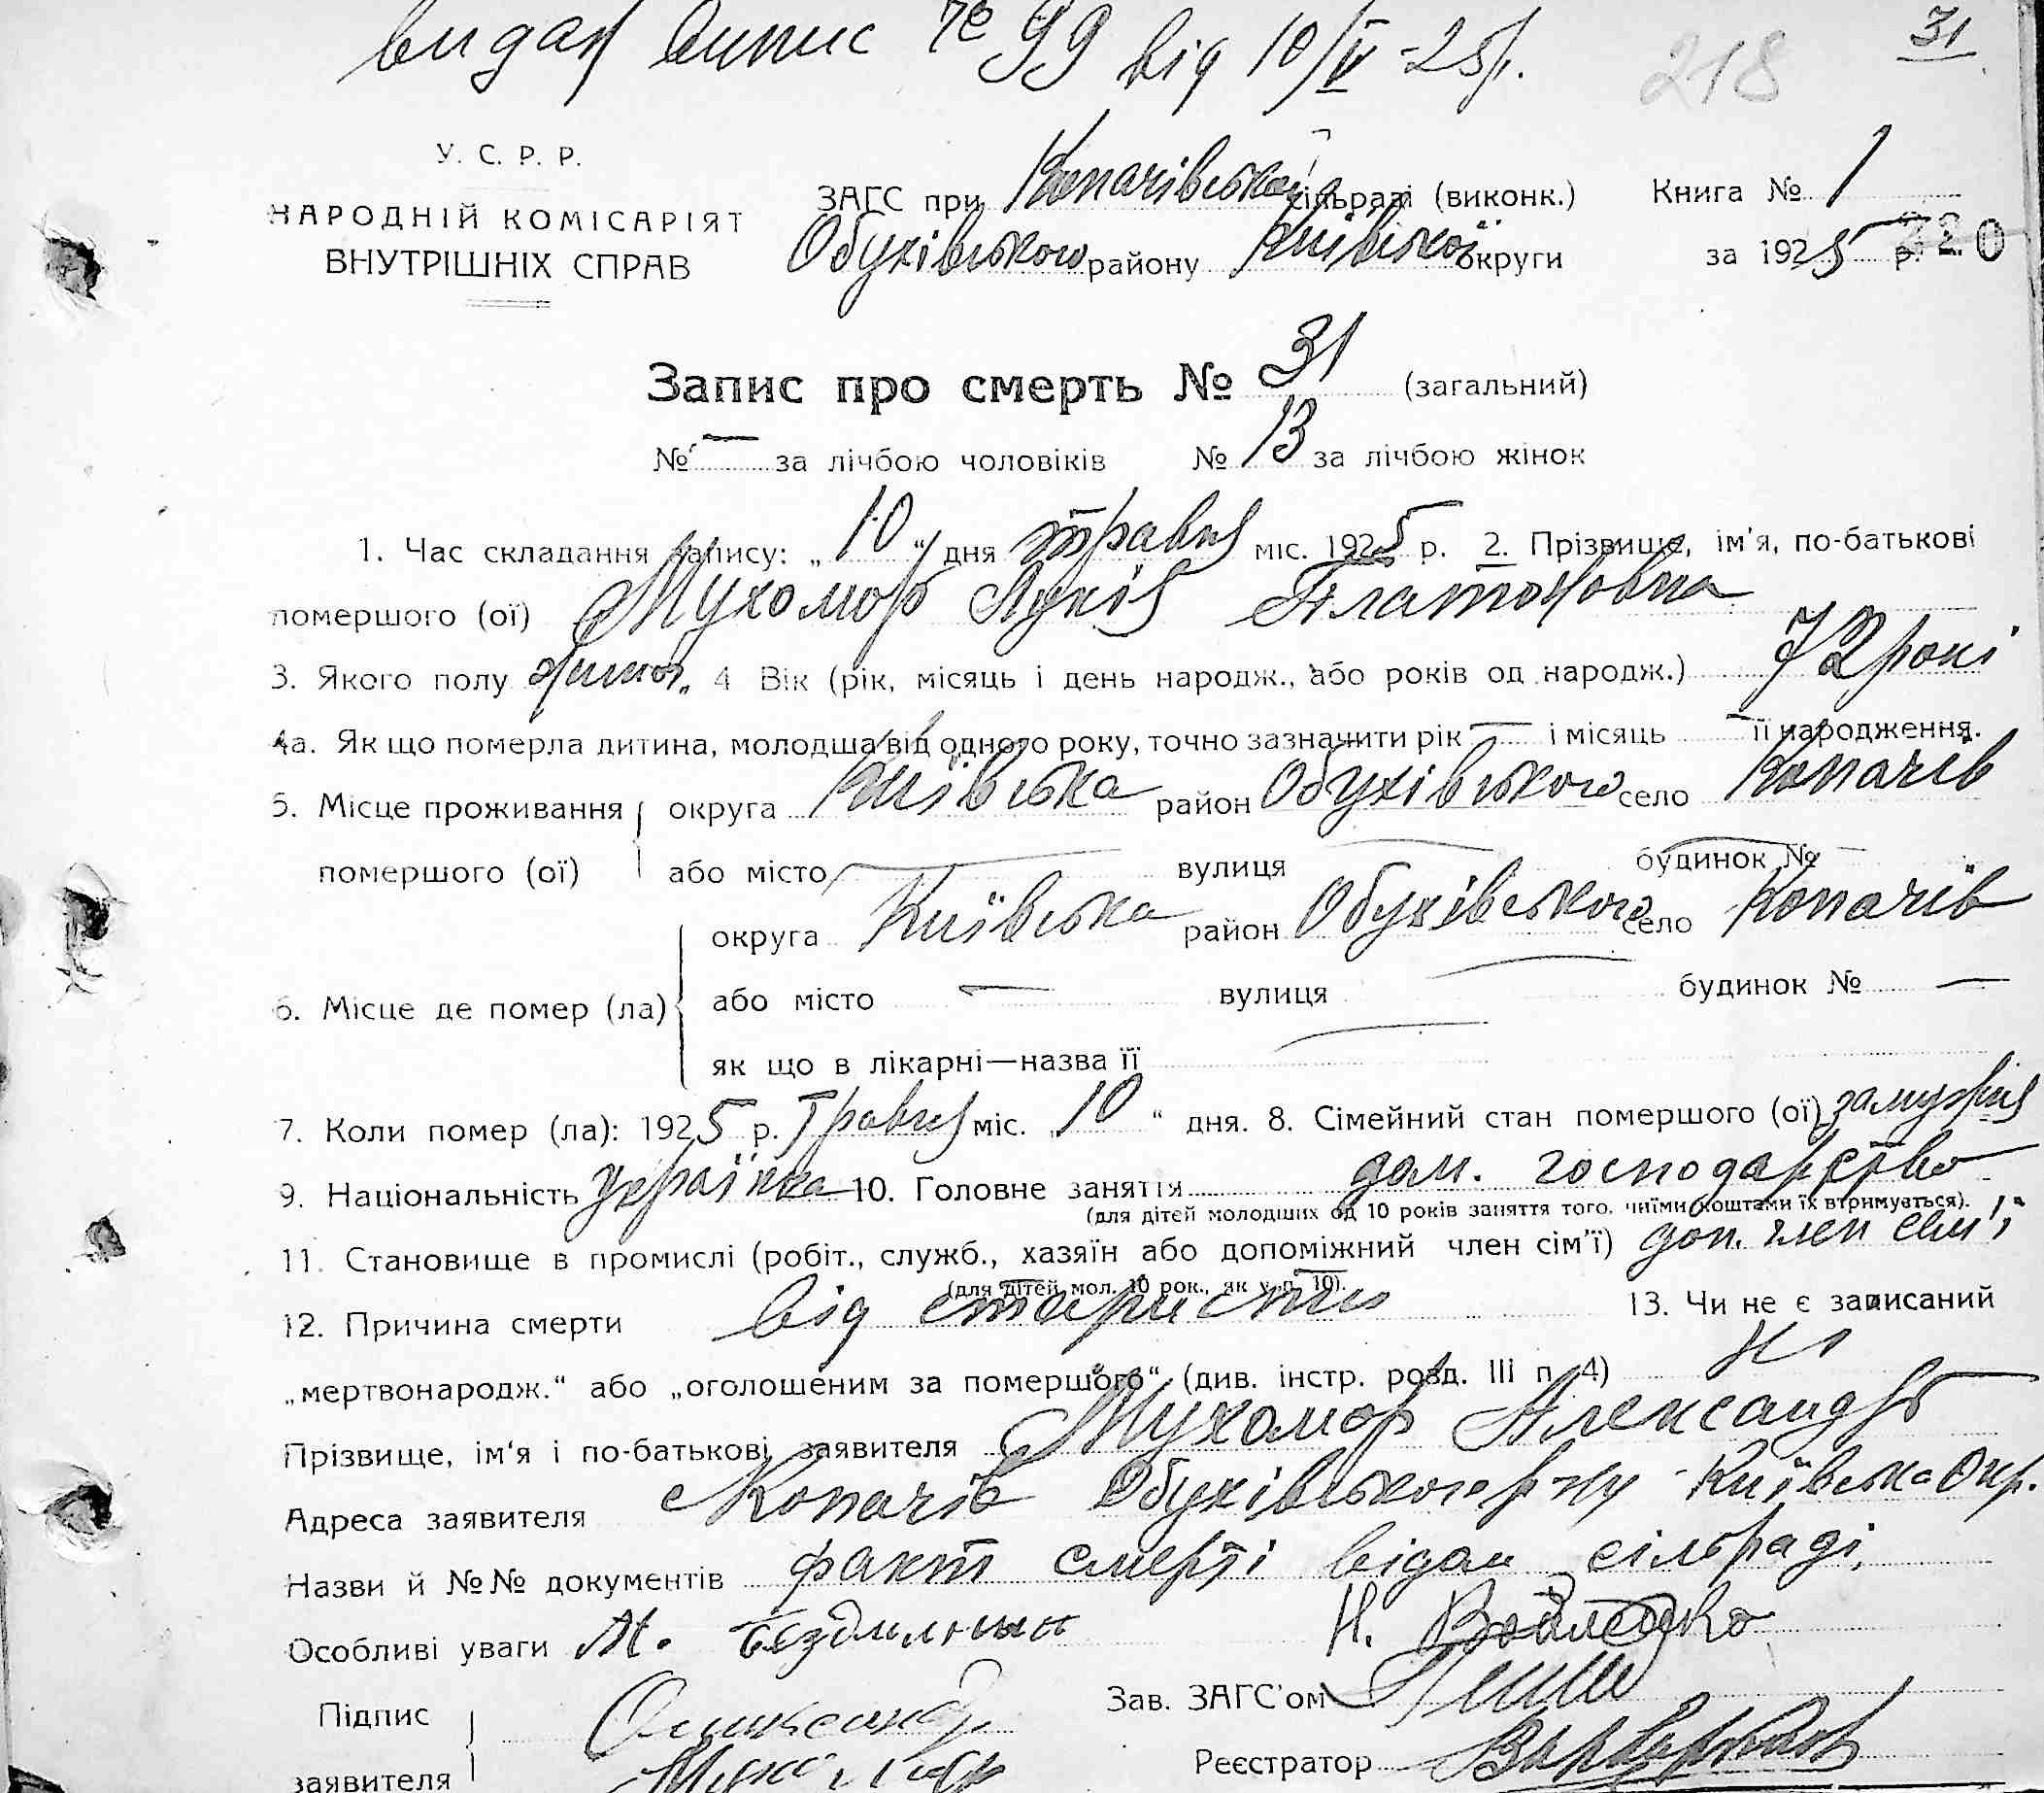 видан випис № 99 від 10/V-25 р.
31
218
У. С. Р. Р.
НАРОДНІЙ КОМІСАРІЯТ
ВНУТРІШНІХ СПРАВ
ЗАГС при Копачівській сільраді (виконк.) Книга № 1
Обухівського району Київської округи за 1925 р. 220
Запис про смерть № 31 (загальний)
№ — за лічбою чоловіків № 13 за лічбою жінок
1. Час складання запису: „ 10 “ дня травня міс. 1925 р. 2. Прізвище, ім'я, по-батькові
помершого (ої) Мухомор Лукія Платоновна
3. Якого полу жіноч. 4 Вік (рік, місяць і день народж., або років од народж.) 72 рокі
4а. Як що померла дитина, молодша від одного року, точно зазначити рік — і місяць — її народження.
5. Місце проживання округа Київська район Обухівського село Копачів
помершого (ої) або місто — вулиця — будинок № —
округа Київська район Обухівського село Копачів
6. Місце де помер (ла) або місто — вулиця — будинок № —
як що в лікарні—назва її —
7. Коли помер (ла): 1925 р. Травня міс. „ 10 “ дня. 8. Сімейний стан помершого (ої) замужня
9. Національність українка 10. Головне заняття дом. господарство
(для дітей молодших од 10 років заняття того, чиїми коштами їх втримується).
11. Становище в промислі (робіт., служб., хазяїн або допоміжний член сім'ї) доп. член сем'ї
(для дітей мол. 10 рок., як у п. 10).
12. Причина смерти від старисти 13. Чи не є записаний
„мертвонародж.“ або „оголошеним за помершого“ (див. інстр. розд. III п. 4) ні
Прізвище, ім'я і по-батькові заявителя Мухомор Александр
Адреса заявителя с Копачів Обухівського р-ну Київська Окр.
Назви й №№ документів факт смерті відом сільраді,
Особливі уваги М. Н.
Підпис Зав. ЗАГС'ом
Реєстратор
заявителя Мухомор